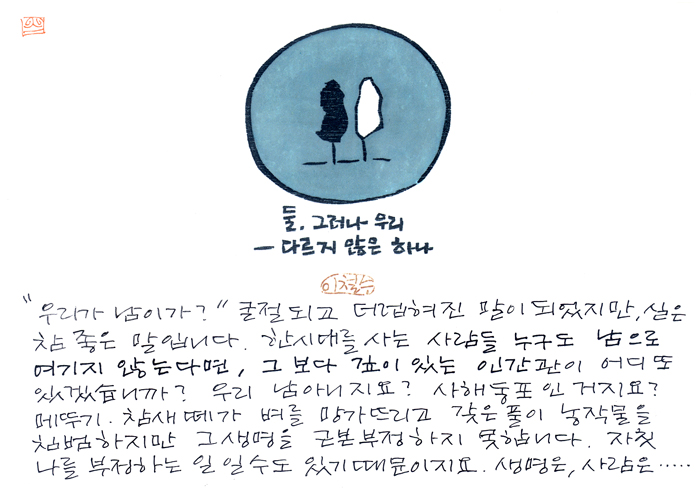 둘. 그러나 우리
— 다르지 않은 하나
이철수
"우리가 남이가?" 굴절되고 더럽혀진 말이 되었지만, 실은
참 좋은 말입니다. 한시대를 사는 사람들 누구도 남으로
여기지 않는다면, 그 보다 깊이 있는 인간관이 어디 또
있겠습니까? 우리 남아니지요? 사해동포인 거지요?
메뚜기·참새떼가 벼를 망가뜨리고 갖은 풀이 농작물을
침범하지만 그 생명을 근본부정하지 못합니다. 자칫
나를 부정하는 일 일수도 있기때문이지요. 생명은, 사람은·····